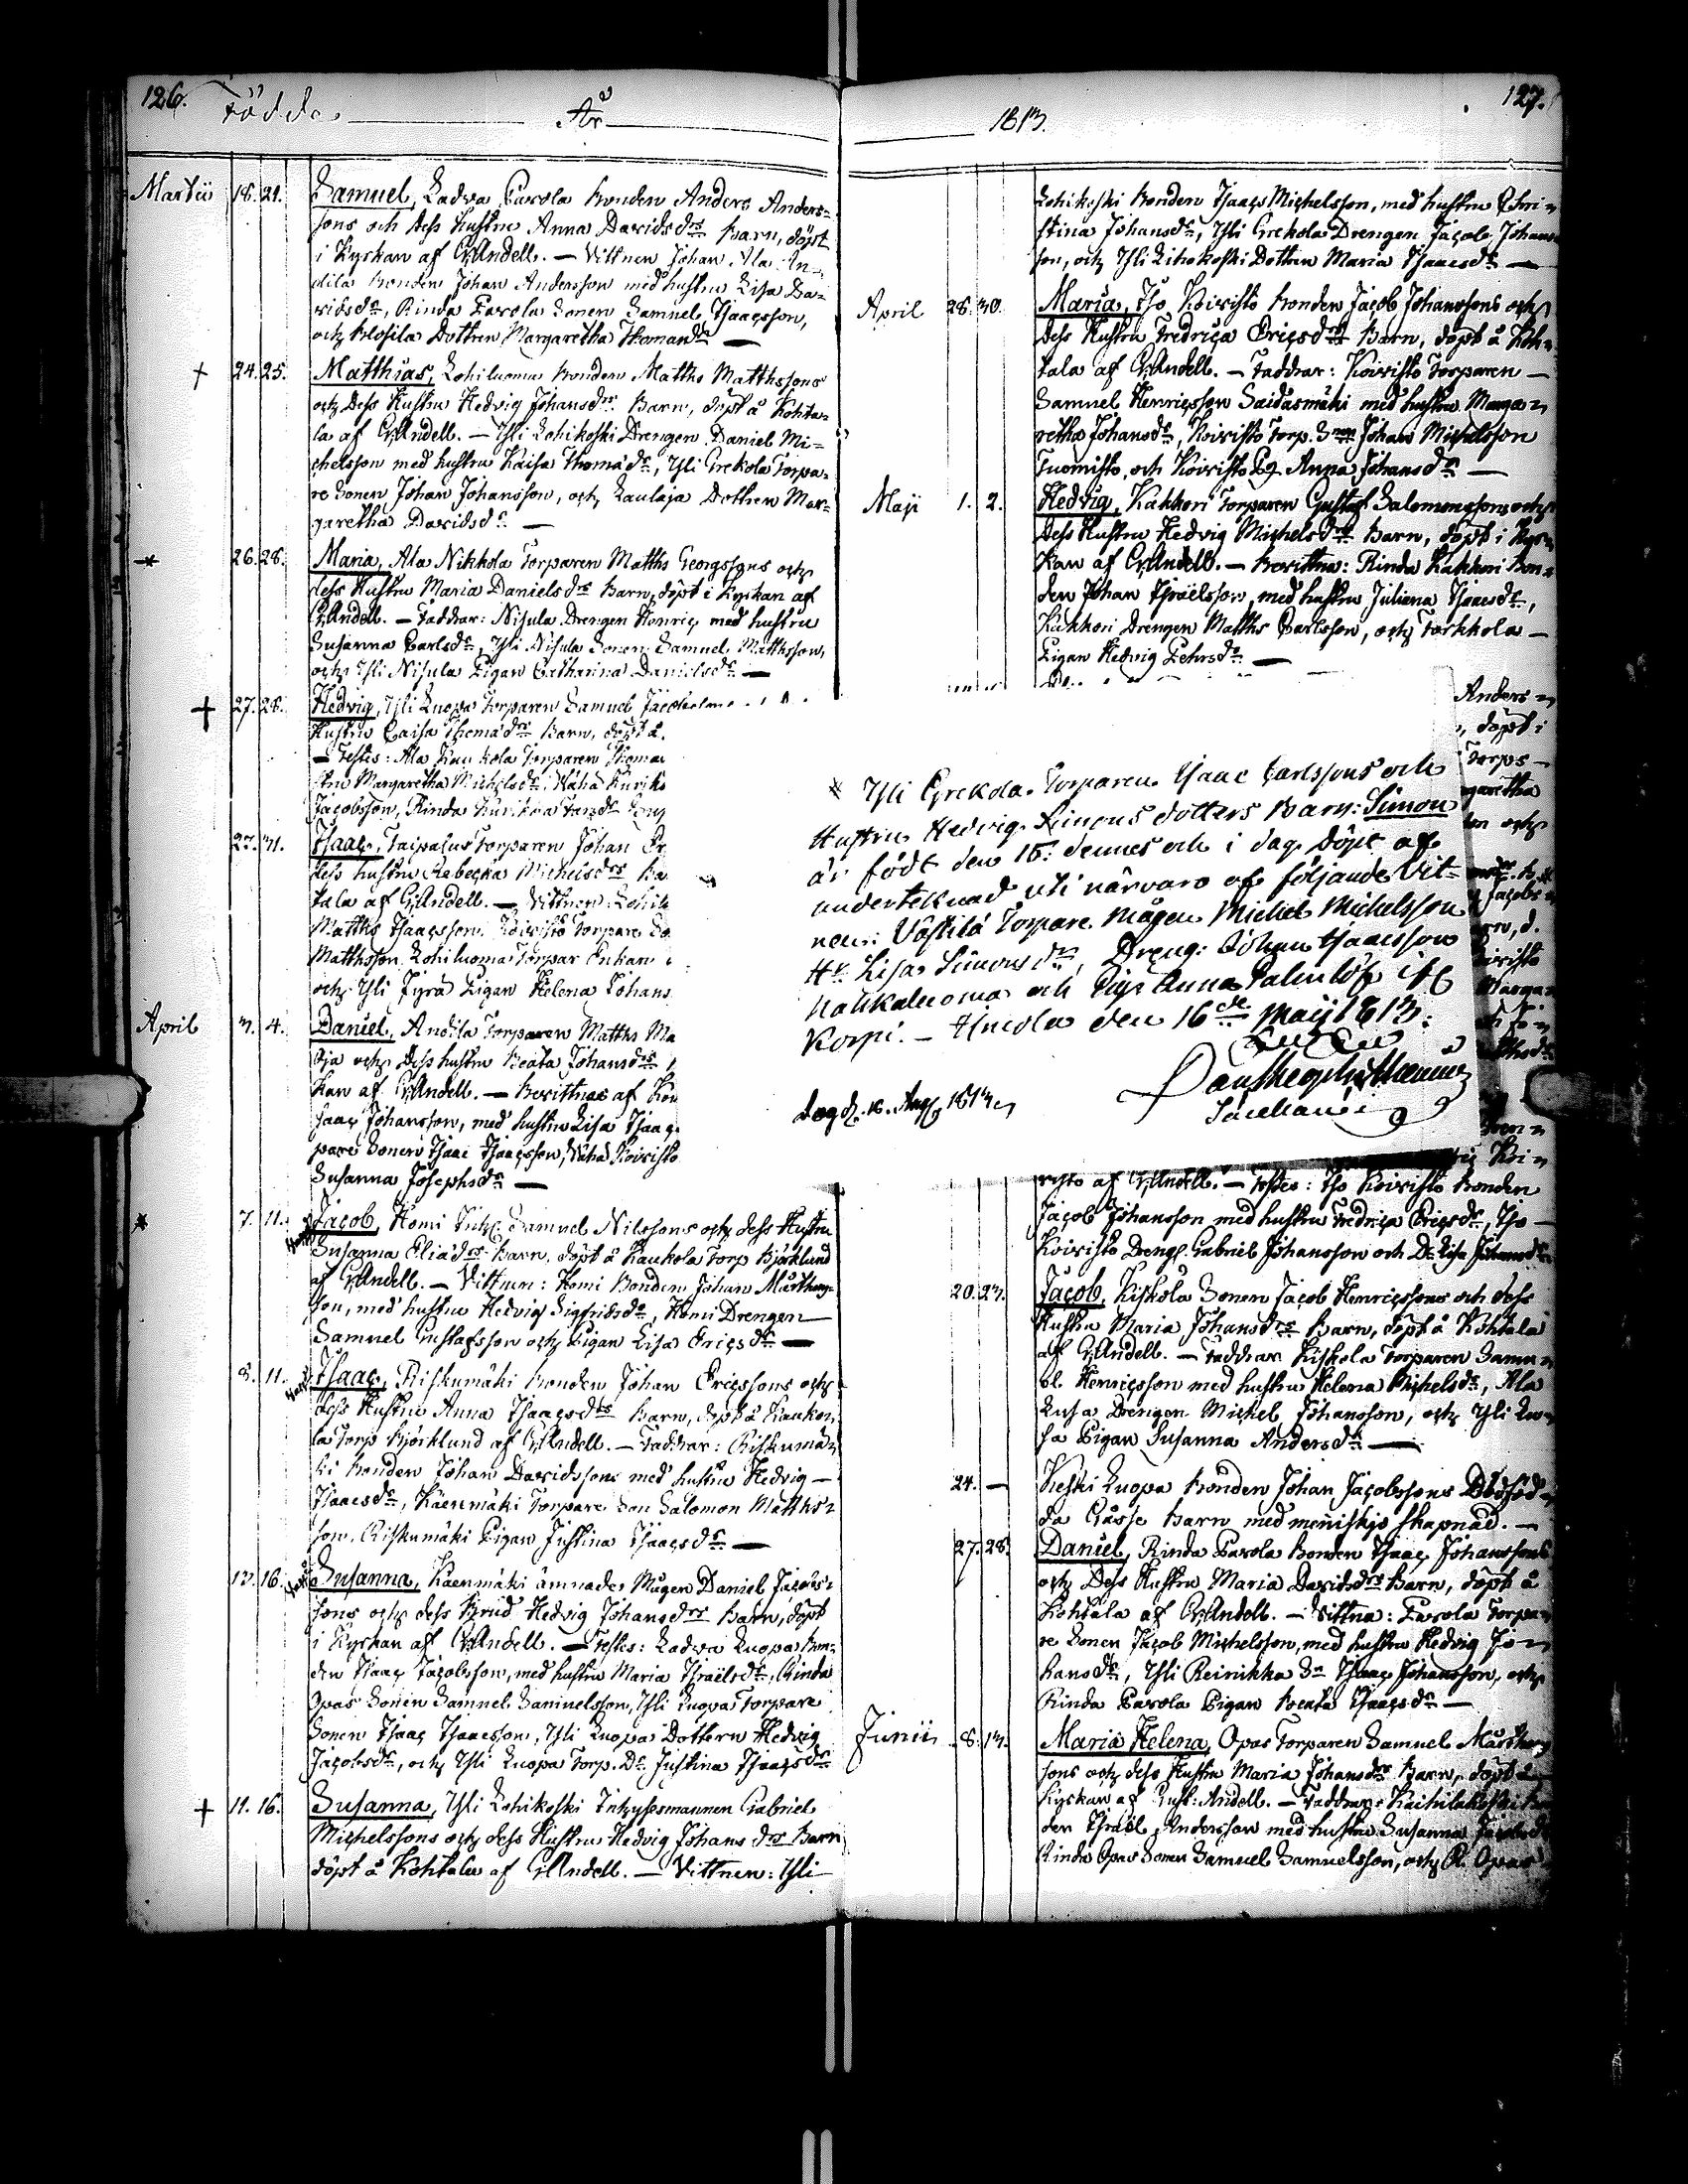 126.
Födde
År
Martii 18. 21. Samuel, Ladva Pavola Bonden Anders Anders=
sons och dess Hustru Anna Davidsdrs Barn, döpt
i Kyrkan af G. Andell. — Vittnen Johan Ala An=
dila Bonden Johan Andersson med hustru Lisa Da=
vidsdr, Rinda Pavola Sonen Samuel Isaacsson,
och Dottren Margaretha Thomædr —
† 24. 25. Matthias, Lohiluoma Bonden Matths Matthssons
och Dess Hustru Hedvig Johansdrs Barn, döpt å Kohta=
la af G. Andell. — Yli Lohikoski Drengen Daniel Mi=
chelsson med hustru Kaisa Thomædr, Yli Grekola Torpa=
re Sonen Johan Johansson, och Laulaja Dottren Mar=
garetha Davidsdr —
26. 28. Maria, Ala Nikkola Torparen Matths Georgssons och
dess Hustru Maria Danielsdrs Barn, döpt i Kyrkan af
G. Andell. — Faddrar: Nisula Drengen Henric med hustru
Susanna Carlsdr, Yli Nisula Sonen Samuel Matthsson,
och Yli Nisula Pigan Catharina Danielsdr —
† 27. 28. Hedvig, Yli Luopa Torparen Samuel
Hustru Caisa Thomædrs Barn, döpt å
— Testes: Ala Torparen Thomas
Margaretha Michelsdr, Vähä
Jacobsson, Rinda
27. 31. Isaac, Taipalus Torparen Johan Er
dess hustru Rebecka Michelsdrs Ba
tala af G. Andell. — Vittnen: Lohik
Matths Isaacsson Koivisto Torpare So
Matthsson Lohiluoma Torpar Enkan
och Yli Jyrä Pigan Helena Johans
April 3. 4. Daniel, Andila Torparen Matths Ma
och Dess hustru Beata Johansdrs
kan af G. Andell. — Bevittnas af
Isaac Johansson, med hustru Lisa Isaac
pare Sonen Isaac Isaacsson, Vähä Koivisto
Susanna Josephsdr —
7. 11. Jacob, Homi Samuel Nilssons och dess Hustru
Susanna Eliædrs Barn, döpt å Kaukola Torp Björklund
af G. Andell. — Vittnen: Homi Bonden Johan Mårthens=
son, med hustru Hedvig Sigfridsdr, Homi Drengen
Samuel Gustafsson och Pigan Lisa Ericsdr —
8. 11. Isaac, Riskumäki Bonden Johan Ericssons och
dess Hustru Anna Isaacsdrs Barn, döpt å Kauko=
la Torp Björklund af G. Andell. — Faddrar: Riskumä=
ki Bonden Johan Davidsson med hustru Hedvig —
Isaacsdr, Käenmäki Torpare Son Salomon Matths=
son, Riskumäki Pigan Justina Isaacsdr —
13. 16. Susanna, Käenmäki ämnade Mågen Daniel Jacobs=
sons och dess Brud Hedvig Johansdrs Barn, döpt
i Kyrkan af G. Andell. — Testes: Ladva Luopa Bon=
den Isaac Jacobsson, med hustru Maria Israelsdr, Rinda
Opas Sonen Samuel Samuelsson, Yli Luopa Torpare
Sonen Isaac Isaacsson, Yli Luopa Dottern Hedvig
Jacobsdr, och Yli Luopa Torp. Dr Justina Isaacsdr
† 11. 16. Susanna, Yli Lohikoski Inhysesmannen Gabriel
Michelssons och dess Hustru Hedvig Johansdrs Barn
döpt å Kohtala af G. Andell. — Vittnen: Yli
127.
1813.
Lohikoski Bonden Isaac Michelsson, med hustru Chri=
stina Johansdr, Yli Grekola Drengen Jacob Johans=
son, och Yli Lihokoski Dottren Maria Isaacsdr —
April 28. 30. Maria, Iso Koivisto Bonden Jacob Johanssons och
dess Hustru Fredrica Ericsdrs Barn, döpt å Koh=
tala af G. Andell. — Faddrar: Koivisto Torparen —
Samuel Henricsson Saidasmäki med hustru Marga=
retha Johansdr, Koivisto Torp. Snen Johan Michelsson
Tuomisto, och Koivisto Pg. Anna Johansdr —
Maji 1. 2. Hedvig, Kakkori Torparen Gustaf Salomonssons och
dess Hustru Hedvig Michelsdrs Barn, döpt i Kyr=
kan af G. Andell. — Bevittna: Rinda Kakkori Bon=
den Johan Israelsson, med hustru Juliana Isaacsdr,
Kakkori Drengen Matths Carlsson, och Torkkola —
Pigan Hedvig Pehrsdr —
Anders=
döpt i
Torps —
garetha
och
Yli Grekola Torparen Isaac Carlssons och
Hustrus Hedvig Simons dotters Barn: Simon
är födt den 15: dennes och i dag döpt af
undertecknad uti närvaro af följande Vit=
nen: Torpare Mågen Michel Michelsson
Hu Lisa Simonsdr, Dreng: Johan Isaacsson
Haukaluoma och Pig: Anna
Korpi. — den 16de Maij 1813.
Sacellan
risto af G. Andell. — Testes: Iso Koivisto Bonden
Jacob Johansson med hustru Fredrica Ericsdr, Iso —
Koivisto Drengs. Gabriel Johansson och Dr Lisa Johansdr
20. 23. Jacob, Kiskola Sonen Jacob Henricssons och dess
Hustru Maria Johansdrs Barn, döpt å Kohtala
af G. Andell. — Faddrar Kiskola Torparen Samu=
el Henricsson med hustru Helena Michelsdr, Ala
Drengen Michel Johansson, och Yli
Pigan Susanna Andersdr —
24. — Keski Luopa Bonden Johan Jacobssons Dödföd=
da Gosse Barn med menniskjo skapnad. —
27. 28. Daniel, Rinda Pavola Bonden Isaac Johanssons
och Dess Hustru Maria Davidsdrs Barn, döpt å
Kohtala af G. Andell. — Vittna: Pavola Torpa=
re Sonen Jacob Michelsson, med hustru Hedvig Jo=
hansdr, Yli Reinikka Sn Isaac Johansson, och
Rinda Pavola Pigan Beata Isaacsdr —
Junii 8. 13. Maria Helena, Opas Torparen Samuel Mårthens
sons och dess Hustru Maria Johansdrs Barn, döpt i
Kyrkan af Gust: Andell. — Faddrar:
den Israel Andersson med hustru Susanna Jacobsdr
Rinda Opas Sonen Samuel Samuelsson, och R. Opas